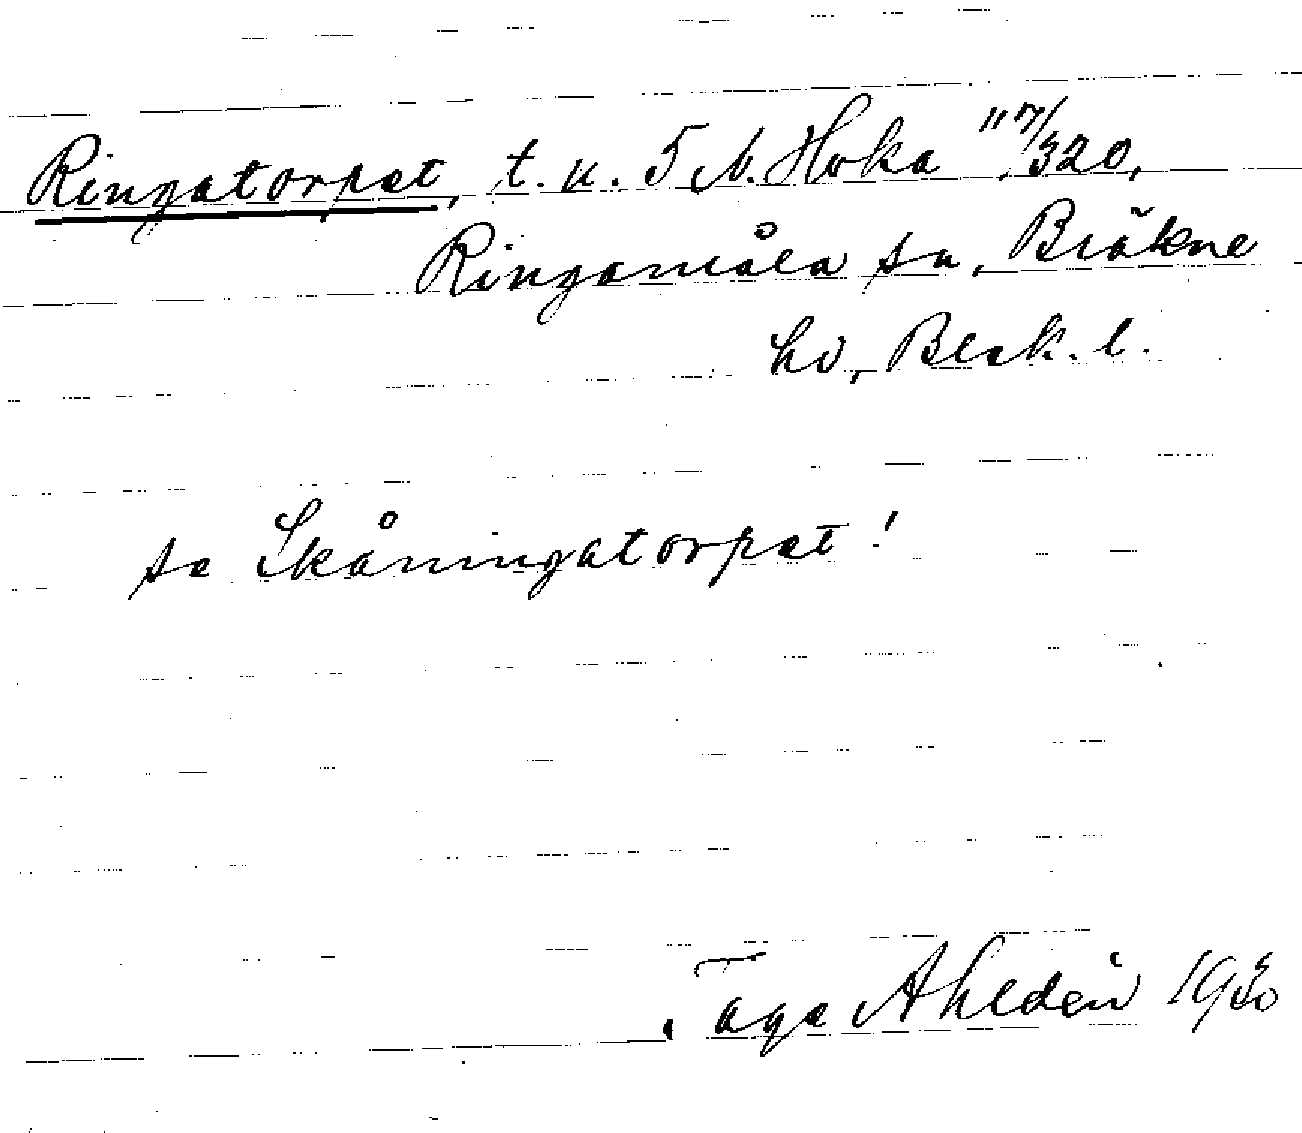 Ringatorpet, t. u. 5 N. Hoka "7/320,
Ringamåla sn, Bräkne
hd, Blek. l.
se Skåningatorpet!
Tage Ahldén 1930